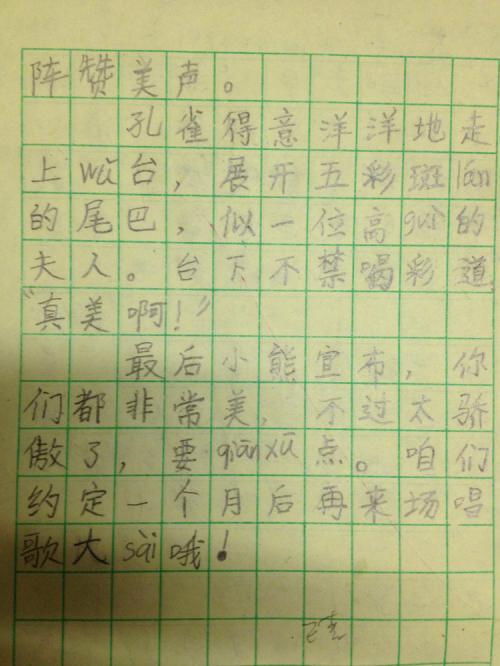 阵赞美声。
孔雀得意洋洋地走
上wǔ台，展开五彩斑lán
的尾巴，似一位高guì的
夫人。台下不禁喝彩道
“真美啊！”
最后小熊宣布，你
们都非常美，不过太骄
傲了，要qiānxū点。咱们
约定一个月后再来场唱
歌大sài哦！